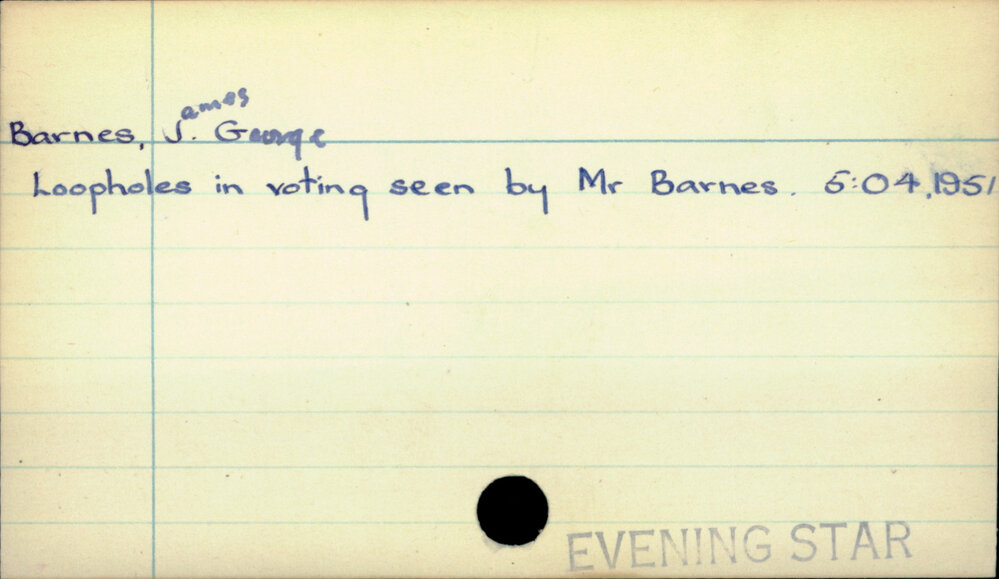 Barnes, James George
Loopholes in voting seen by Mr Barnes. 5:04.1951
EVENING STAR